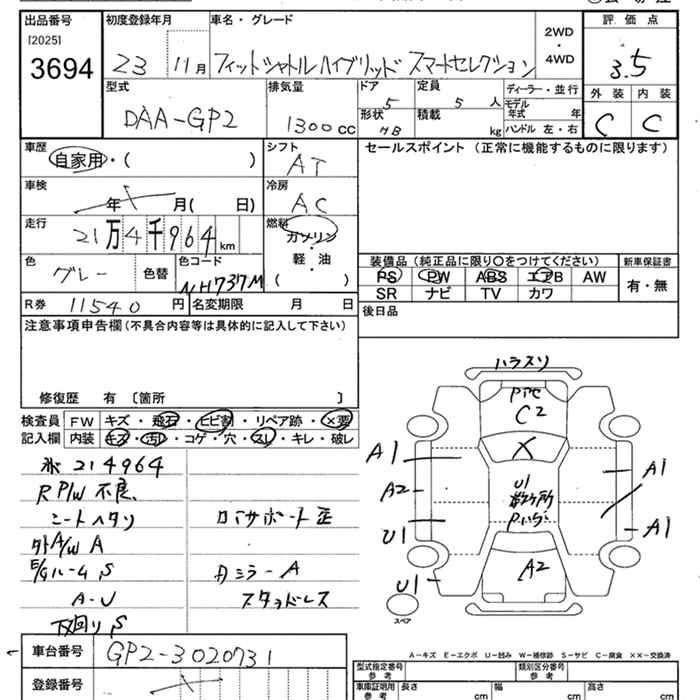 出品番号 初度登録年月 車名・グレード 2WD・4WD 評価点
[2025]
3694 23 11月 フィットシャトルハイブリッド スマートセレクション 3.5
型式 排気量 ドア 5 定員 5 人 ディーラー・並行 外装 内装
DAA-GP2 1300cc 形状 HB 積載 kg モデル年式 年 C C
ハンドル 左・右
車歴 シフト セールスポイント (正常に機能するものに限ります)
自家用・( ) AT
車検 年 月( 日) 冷房 AC
走行 21万4千964km 燃料 ガソリン・軽・油 ( )
装備品(純正品に限り〇をつけてください) 新車保証書
色 グレー 色替 色コード NH737M PS PW ABS エアB AW 有・無
SR ナビ TV カワ
R券 11540円 名変期限 月 日 後日品
注意事項申告欄(不具合内容等は具体的に記入して下さい)
修復歴 有 [箇所 ]
検査員記入欄 FW キズ・飛石・ヒビ割・リペア跡・×要
内装 キズ・汚れ・コゲ・穴・スレ・キレ・破レ
214964
R P/W 不良
シートヘタリ ロアサポート歪
外A/W A
E/Gルーム S カミラーA
A-U スタッドレス
下回りS
車台番号 GP2-3020731
登録番号
ハラスソ
C2
X
A1 A1
A2 U1
U1 A1
U1 A2
スペア
A-キズ E-エクボ U-凹み W-補修跡 S-サビ C-腐食 ××-交換済
型式指定番号 参考 類別区分番号 参考
車庫証明用 参考 長さ cm 幅 cm 高さ cm